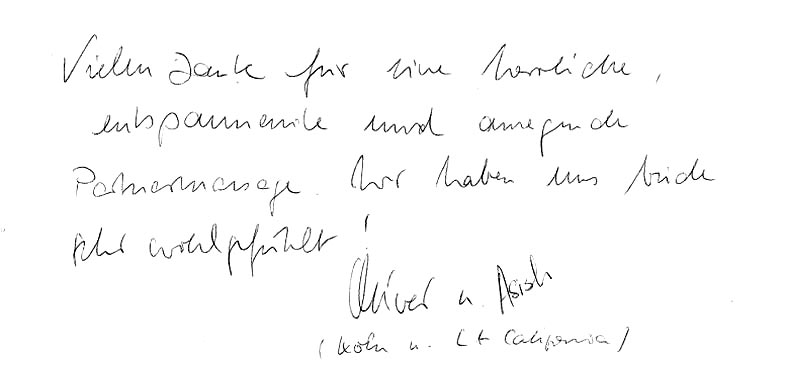 Vielen Dank für eine herrliche,
entspannende und anregende
Partnermassage. Wir haben uns beide
sehr wohlgefühlt!
Oliver u. Asish
(Köln u. LA California)